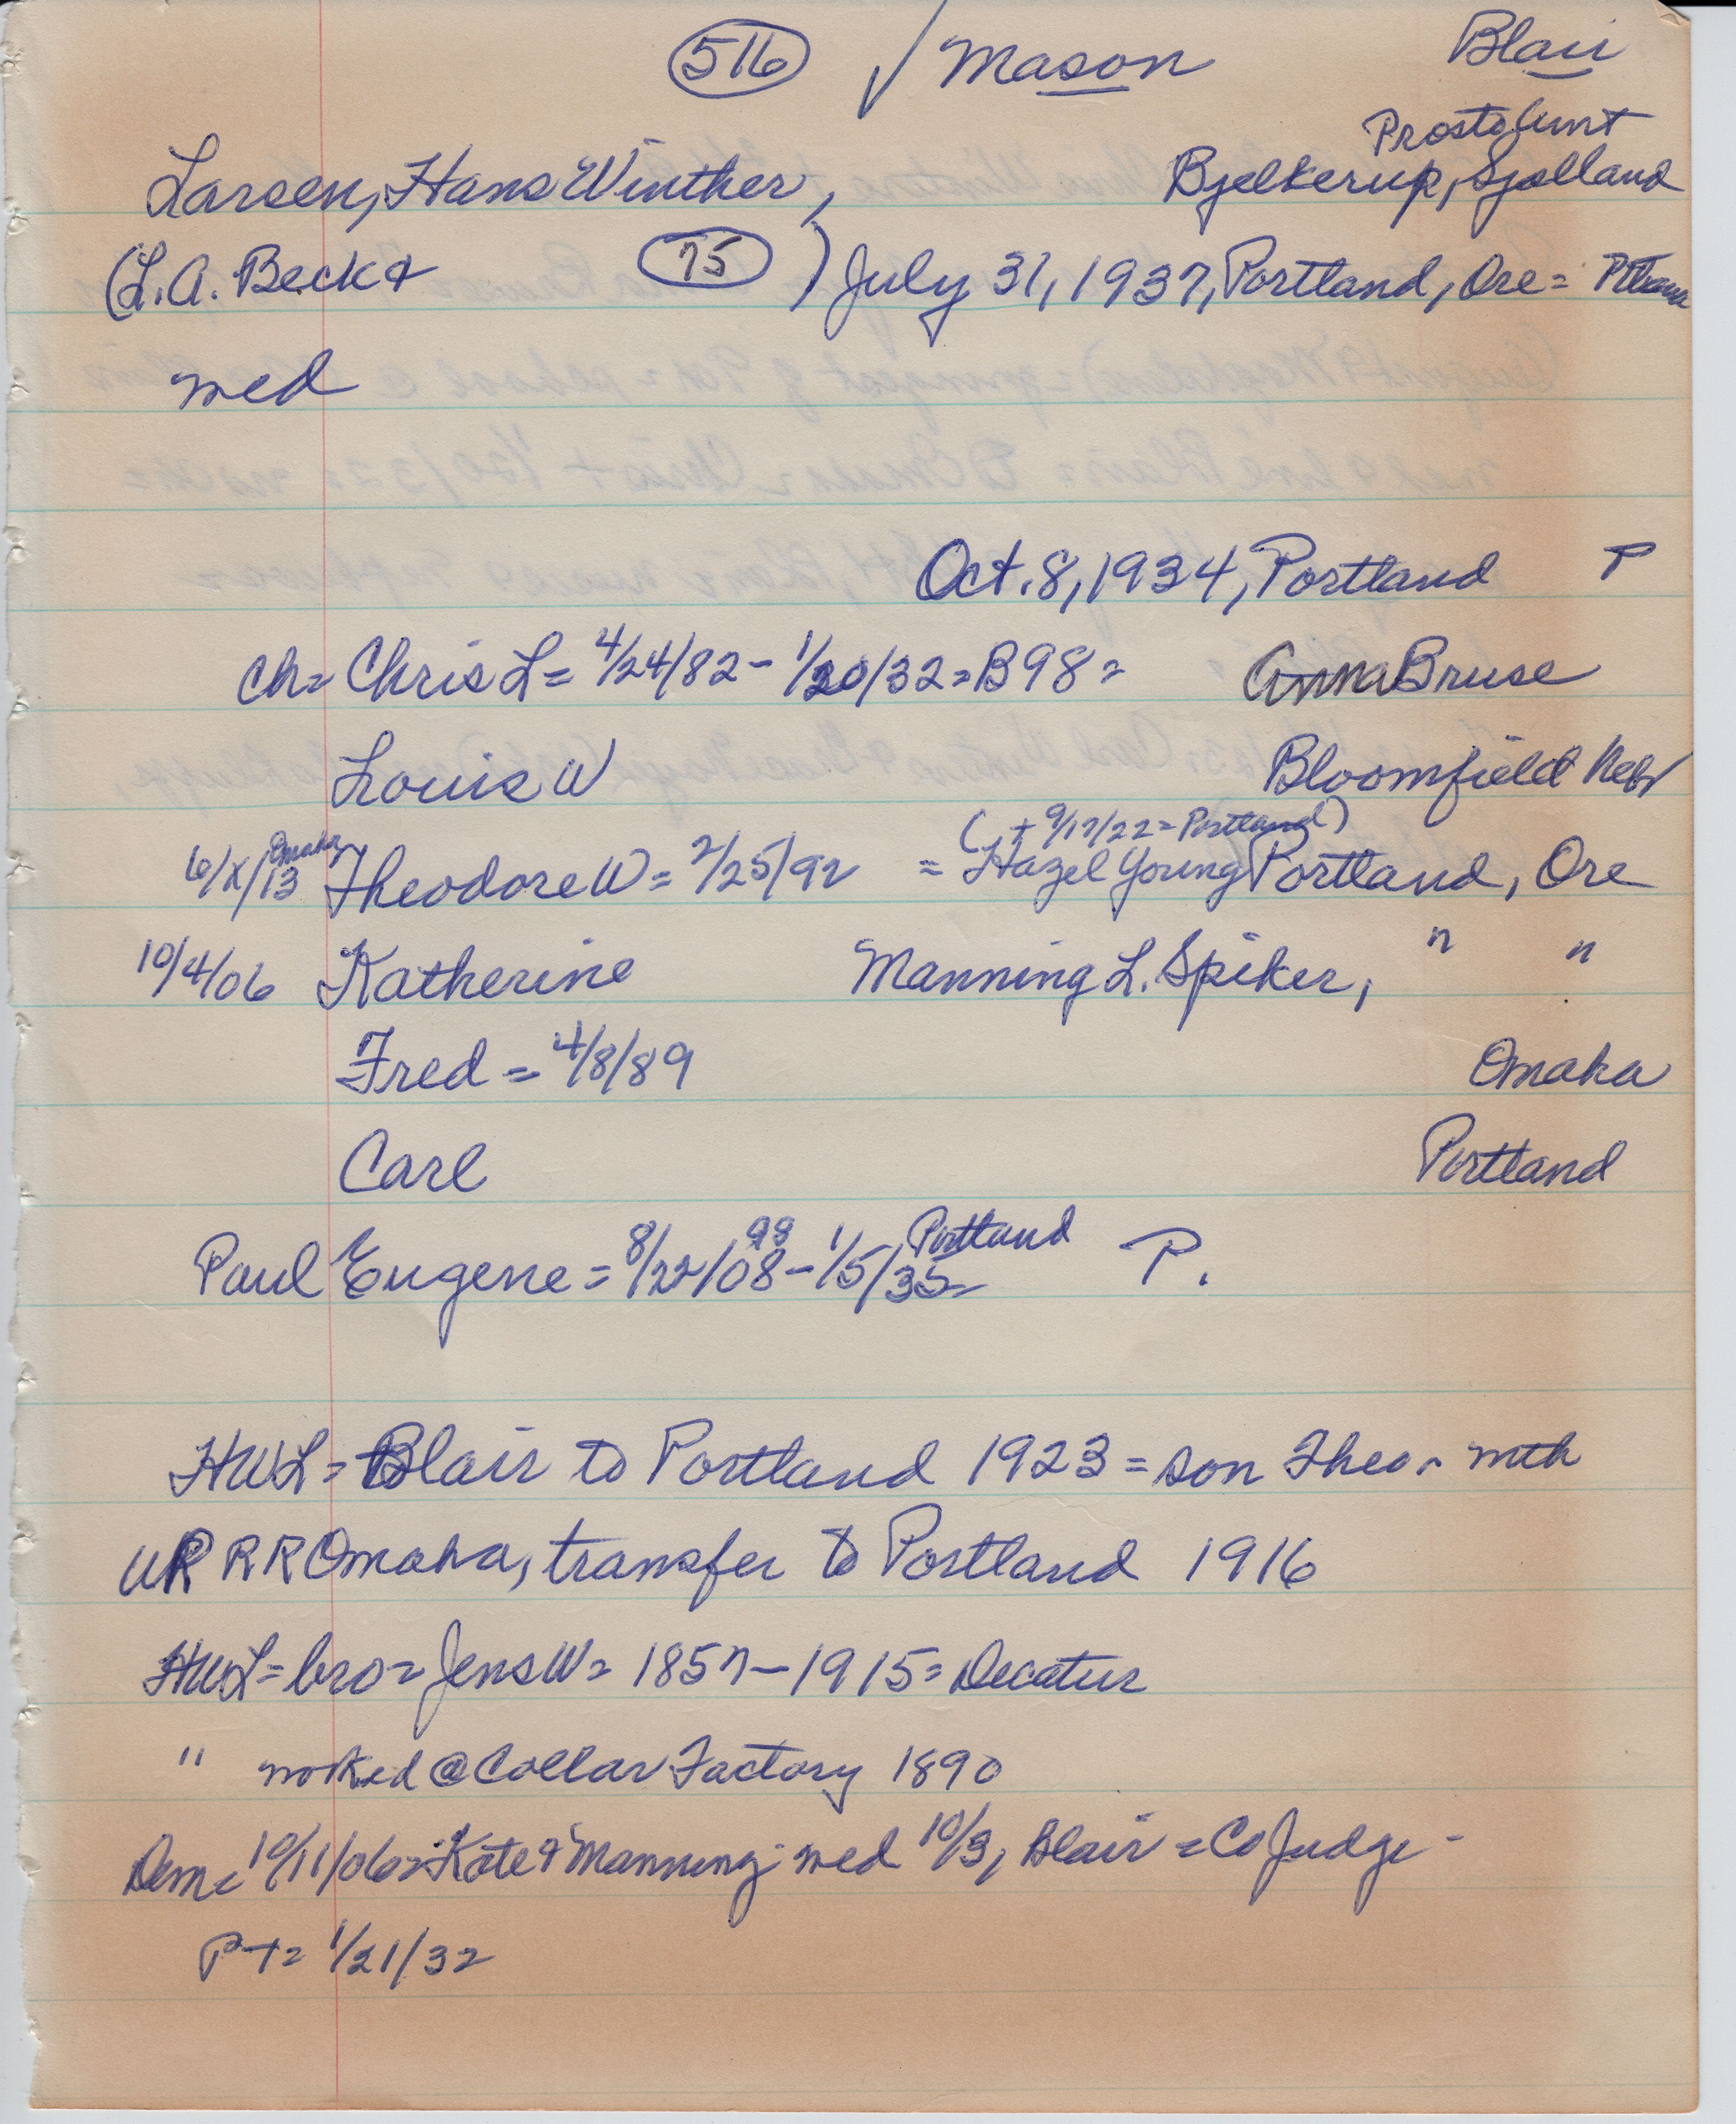 516 ✓ Mason Blair
Prosto Amt
Larsen, Hans Winther, Bjelkerup, Sjolland
(L.A. Beck & 75 ) July 31, 1937, Portland, Ore =
med
Oct. 8, 1934, Portland P
Ch = Chris L = 4/24/82 - 1/20/32 = B98 = Anna Bruse
Louis W Bloomfield Nebr
(+ 9/17/22 = Portland)
6/X/13 Omaha Theodore W = 2/25/92 = Hazel Young Portland, Ore
10/4/06 Katherine Manning L. Spiker, " "
Fred = 4/8/89 Omaha
Carl Portland
Paul Eugene = 8/22/08 99 - 1/5/35 = Portland P.
HWL = Blair to Portland 1923 = son Theo - with
UP RR Omaha, transfer to Portland 1916
HWL = bro = Jens W = 1857 - 1915 = Decatur
" worked @ Collar Factory 1890
Dem = 10/11/06 = Kate & Manning med 10/3, Blair = Co Judge -
PT = 1/21/32